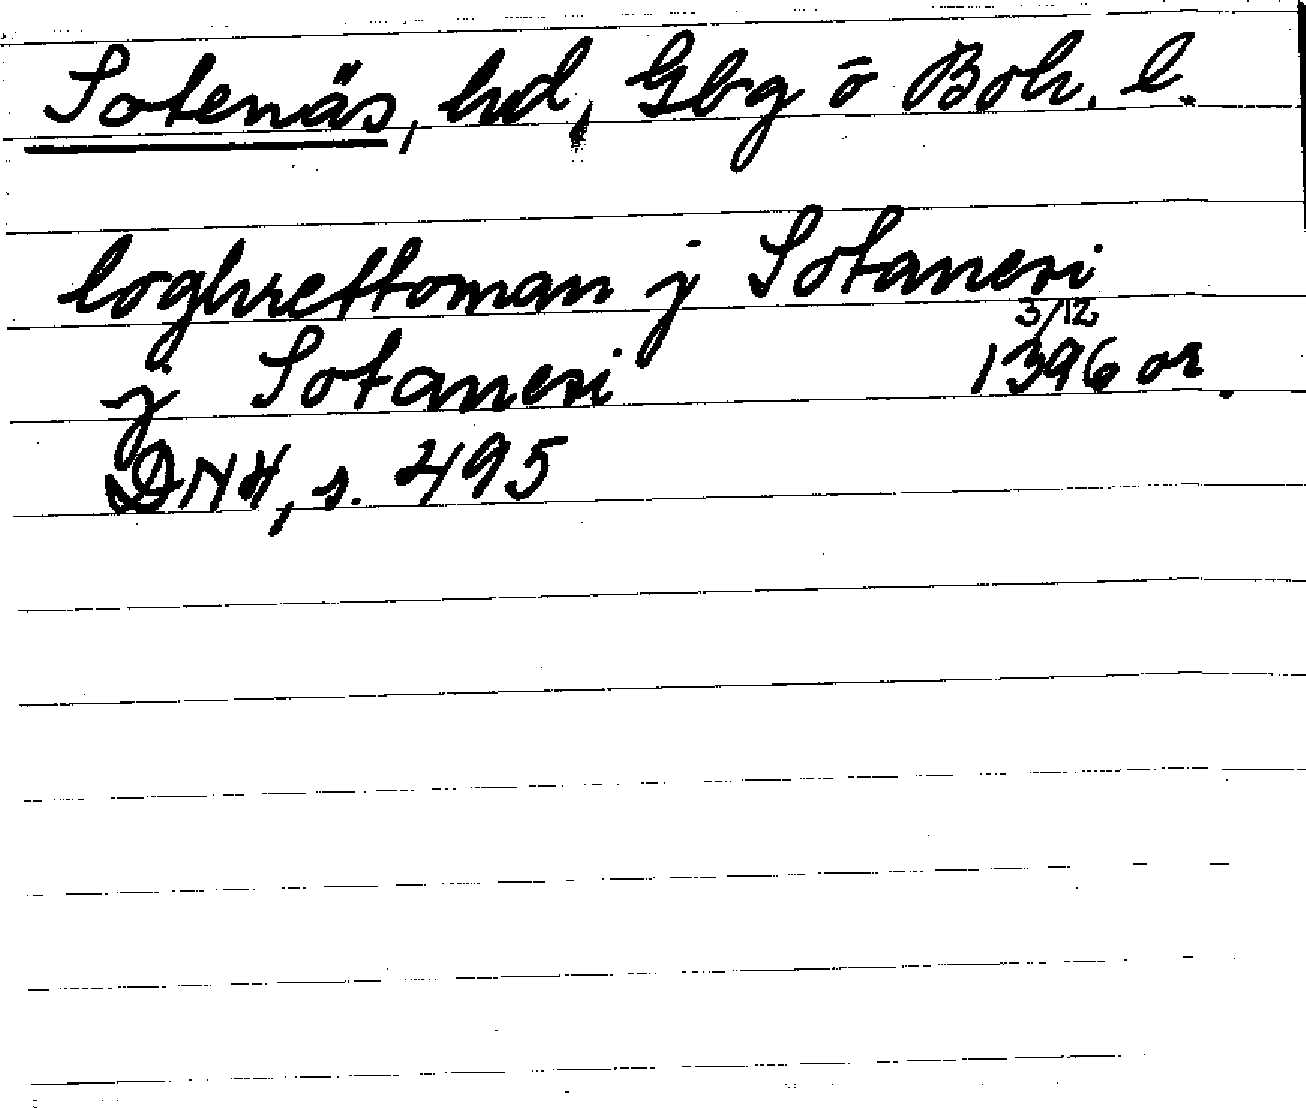 Sotenäs, hd, Gbg o Boh. l.
loghrettoman j Sotanesi
j Sotanesi 3/12 1396 or.
DN 4, s. 495